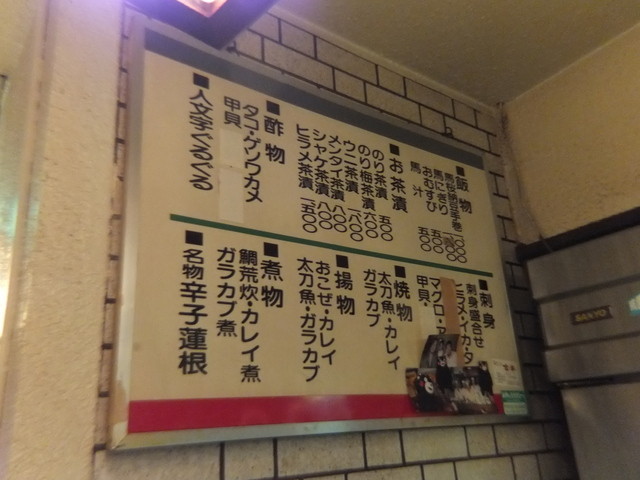 ■飯物
馬桜納豆手巻
馬にぎり
おむすび 五〇〇
馬汁 五〇〇
■お茶漬
のり茶漬 五〇〇
のり梅茶漬 六〇〇
ウニ茶漬
メンタイ茶漬 八〇〇
シャケ茶漬 八〇〇
ヒラメ茶漬 一、五〇〇
■酢物
タコ・ゲソワカメ
甲貝
■人文字ぐるぐる
■刺身
刺身盛合せ
ヒラメ・イカ・タ
マグロ・ア
甲貝・
■焼物
太刀魚・カレイ
ガラカブ
■揚物
おこぜ・カレイ
太刀魚・ガラカブ
■煮物
鯛荒炊・カレイ煮
ガラカブ煮
■名物辛子蓮根
SANYO